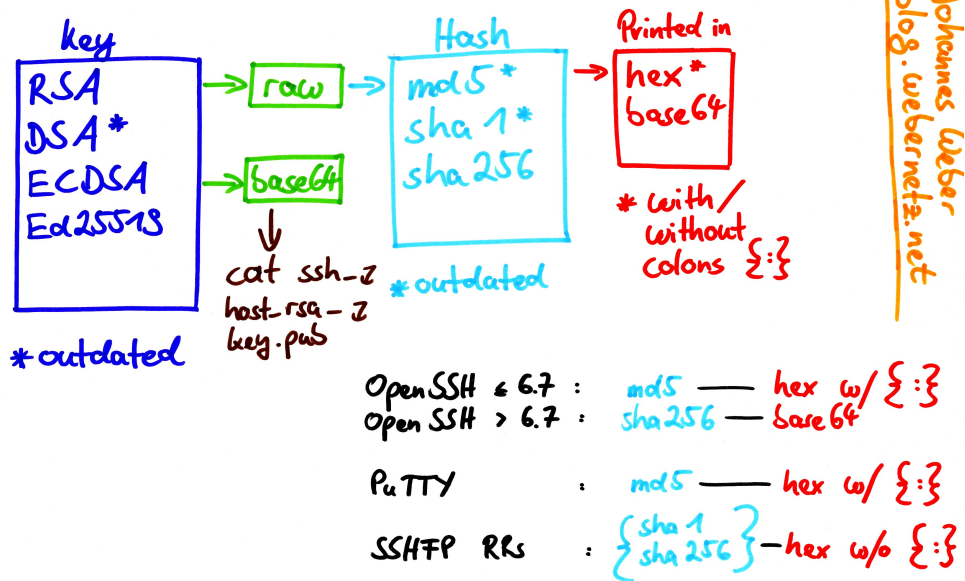 key
RSA
DSA*
ECDSA
Ed25519
*outdated
raw
base64
cat ssh_
host_rsa_
key.pub
Hash
md5*
sha1*
sha256
*outdated
Printed in
hex*
base64
* with/
without
colons {:}
Johannes Weber
blog.webernetz.net
OpenSSH ≤ 6.7 : md5 — hex w/ {:}
OpenSSH > 6.7 : sha256 — base64
PuTTY : md5 — hex w/ {:}
SSHFP RRs : {sha1
sha256} — hex w/o {:}